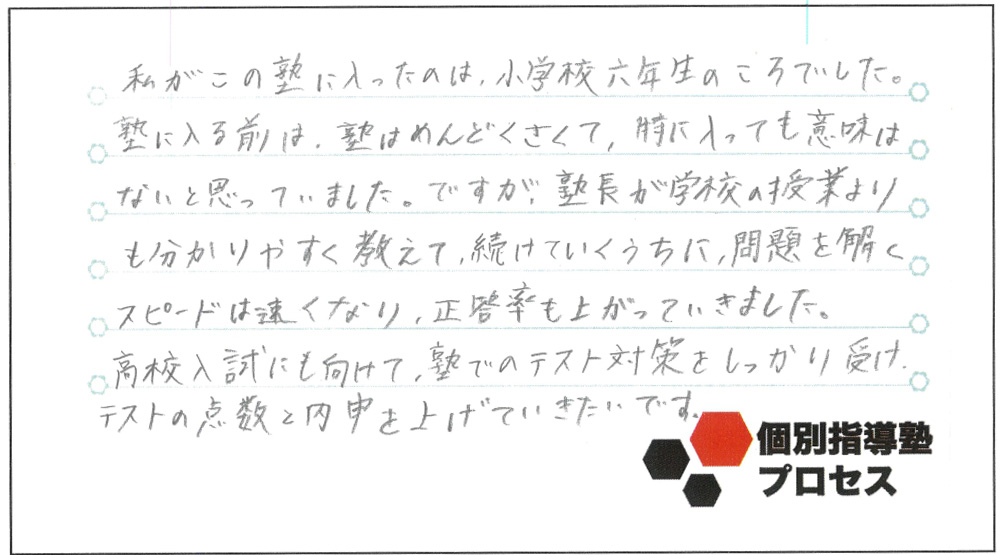 私がこの塾に入ったのは、小学校六年生のころでした。
塾に入る前は、塾はめんどくさくて、特に入っても意味は
ないと思っていました。ですが、塾長が学校の授業より
も分かりやすく教えて、続けていくうちに、問題を解く
スピードは速くなり、正答率も上がっていきました。
高校入試にも向けて、塾でのテスト対策をしっかり受け、
テストの点数と内申を上げていきたいです。
個別指導塾
プロセス